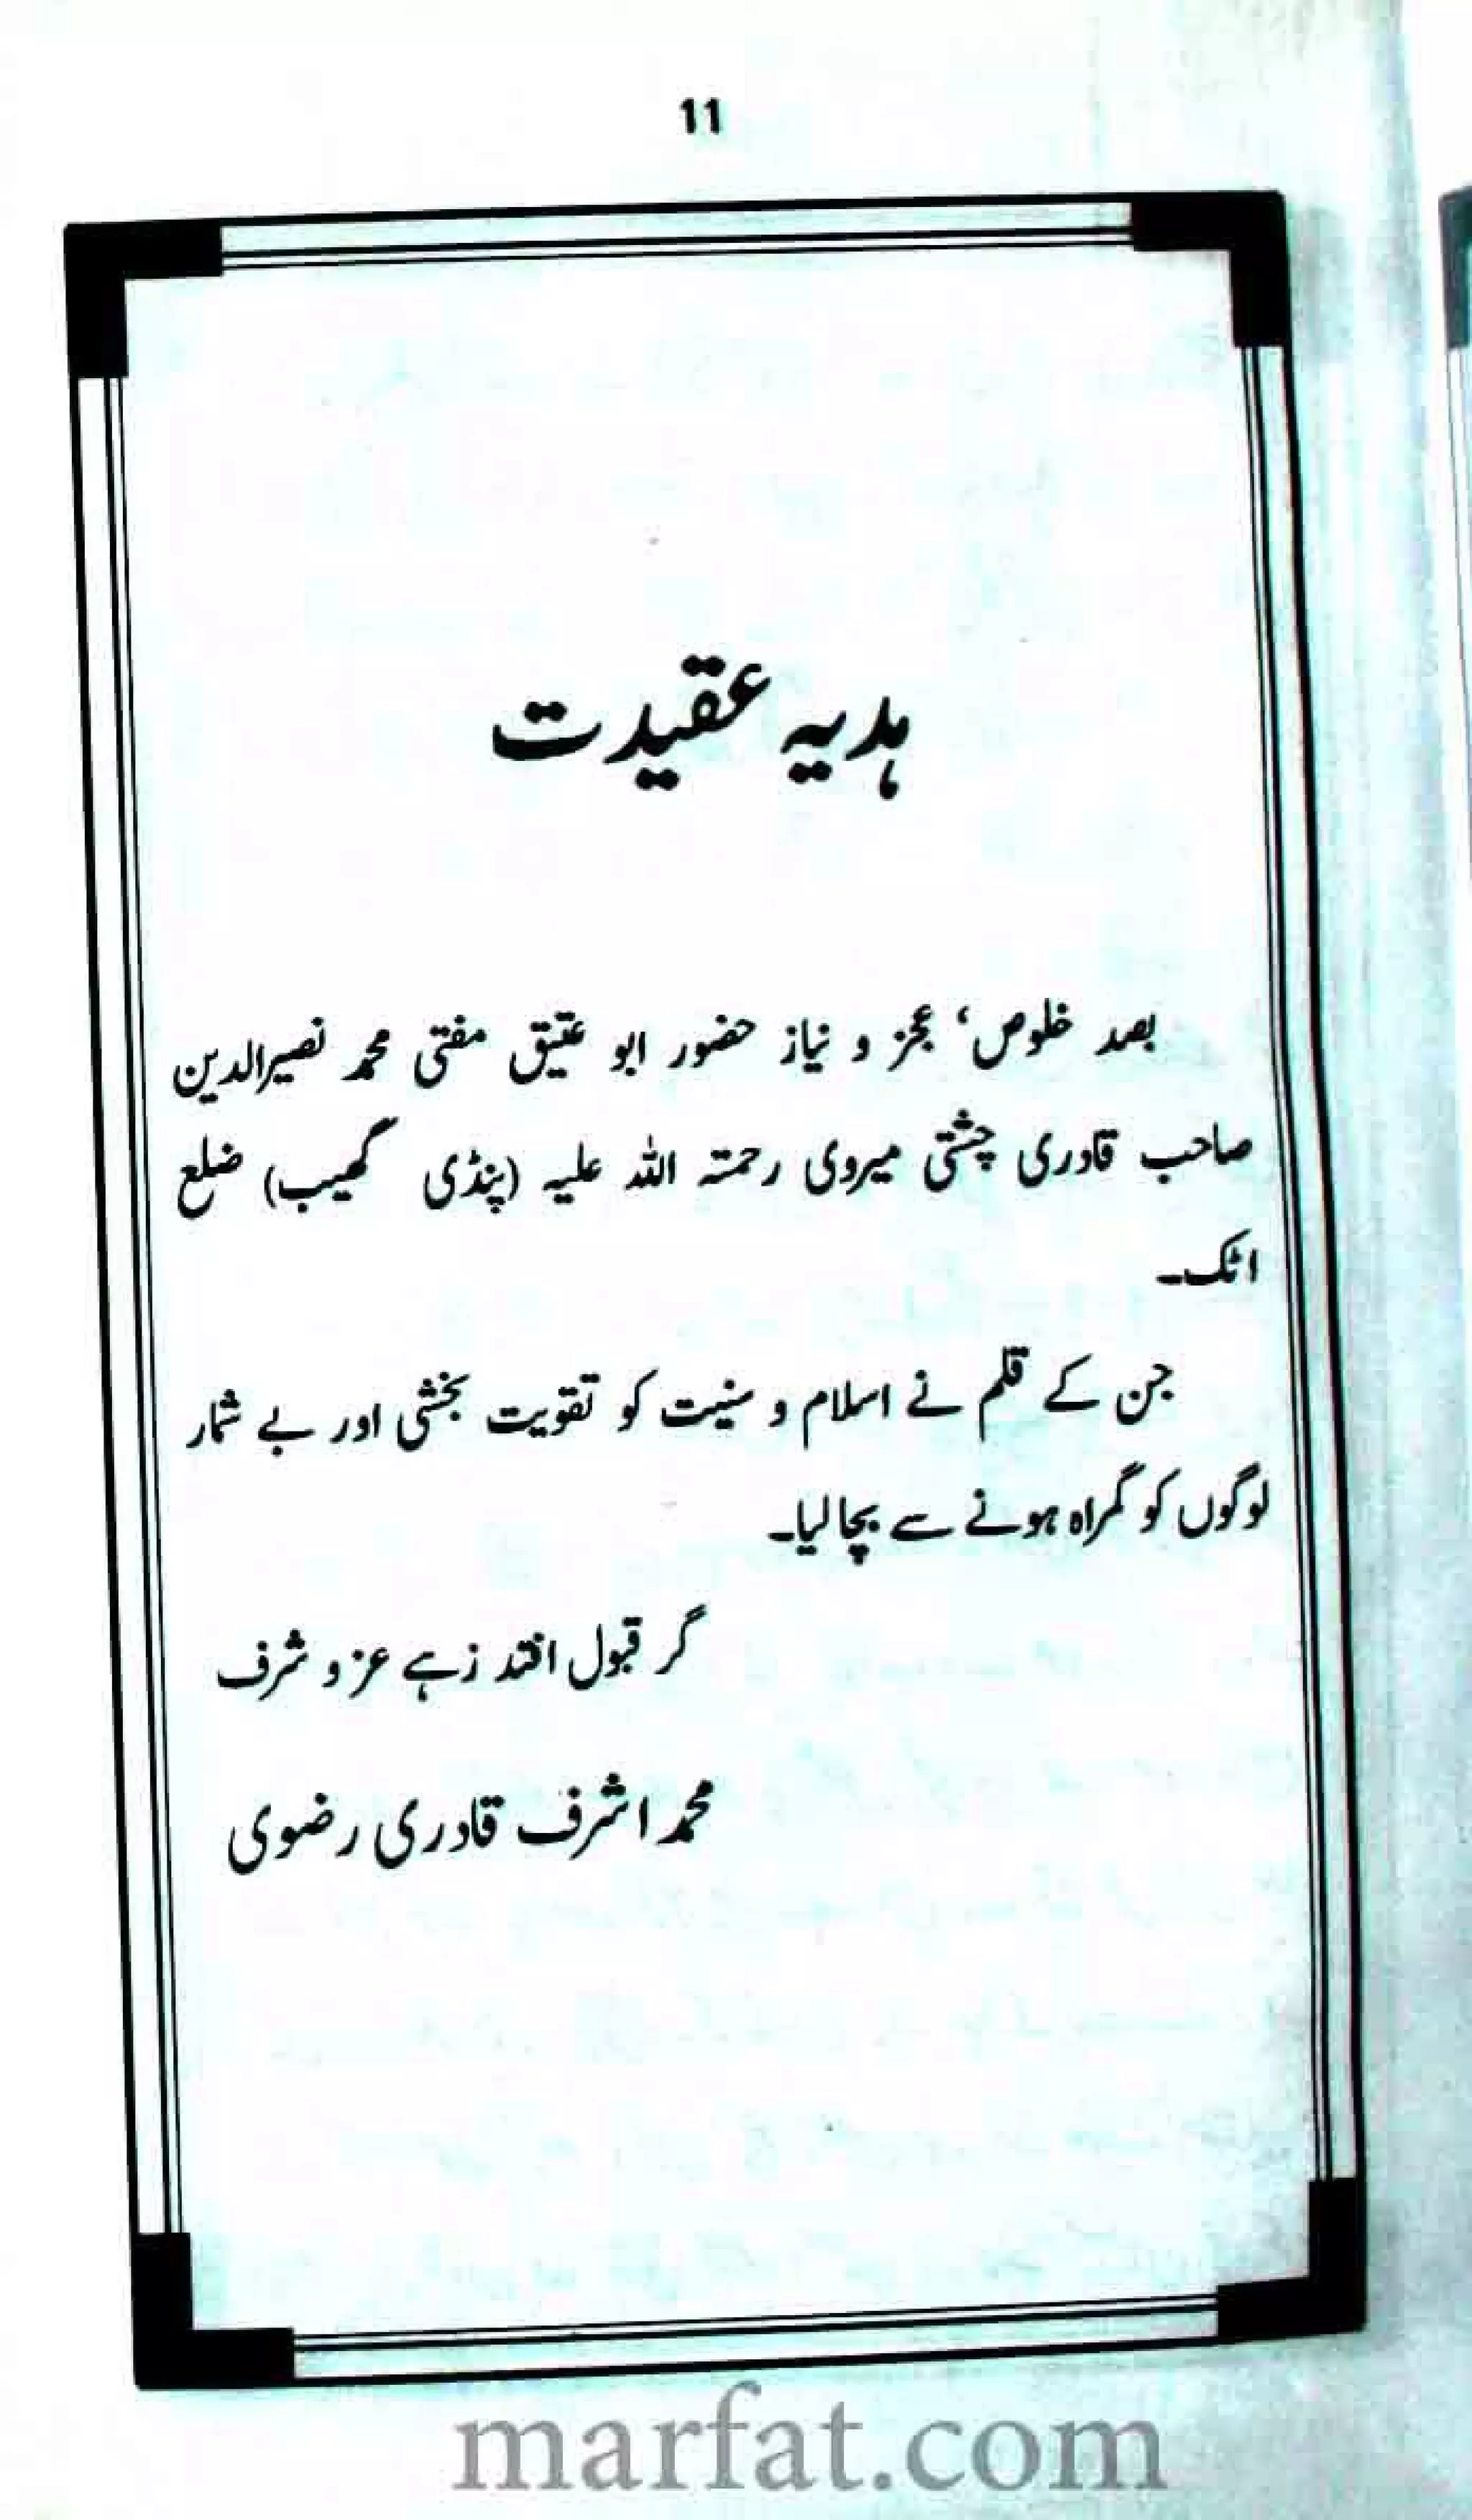 11
ہدیہ عقیدت
بصد خلوص، عجز و نیاز حضور ابو عتیق مفتی محمد نصیرالدین
صاحب قادری چشتی میروی رحمتہ اللہ علیہ (پنڈی گھیب) ضلع
اٹک۔
جن کے قلم نے اسلام و سنیت کو تقویت بخشی اور بے شمار
لوگوں کو گمراہ ہونے سے بچا لیا۔
گر قبول افتد زہے عز و شرف
محمد اشرف قادری رضوی
marfat.com